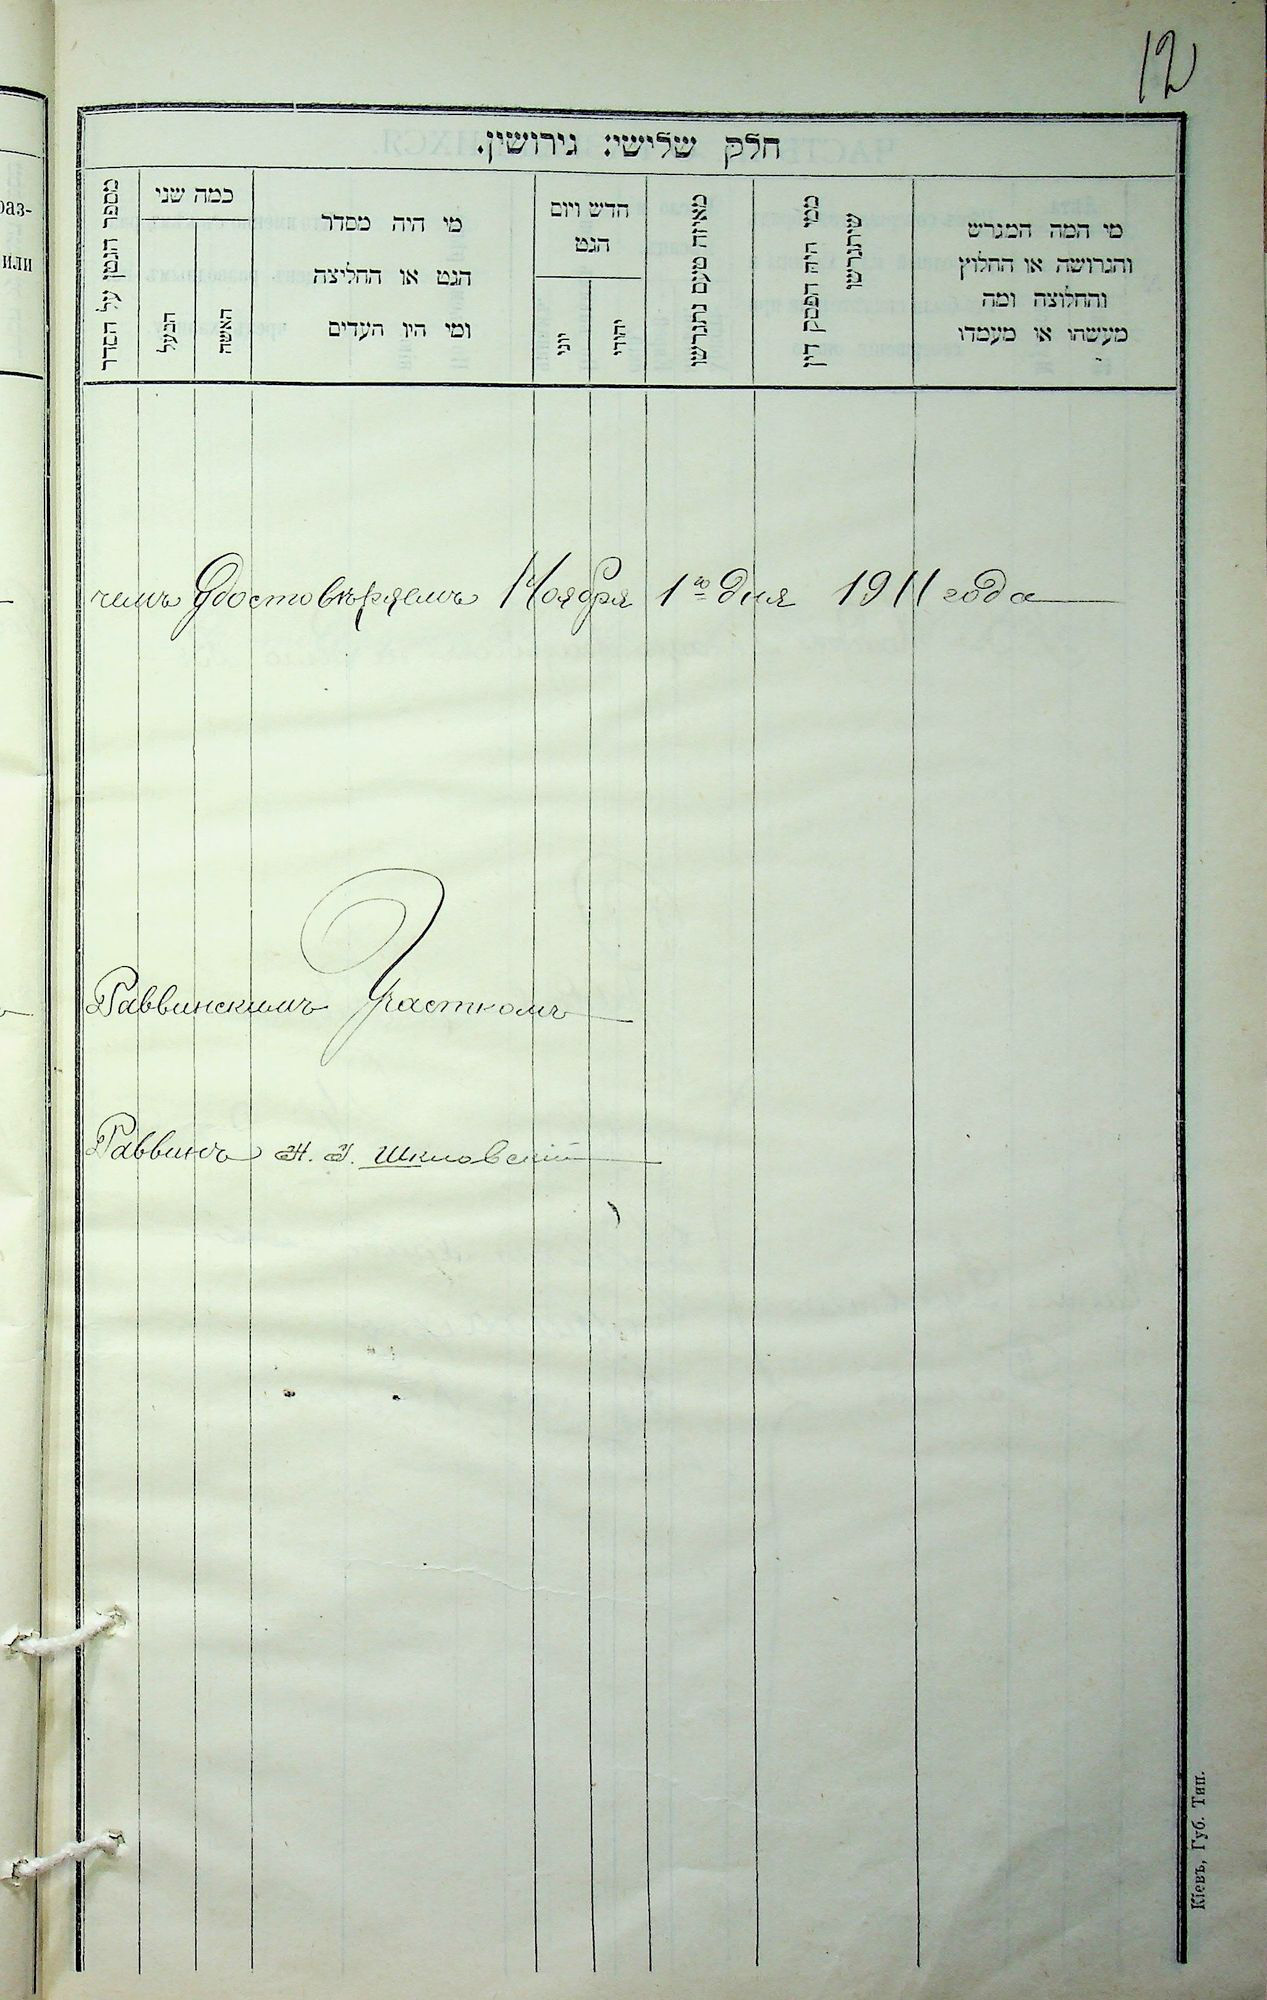 12
חלק שלישי: גירושין.
מי המה המגרש
והגרושה או החלוץ
והחלוצה ומה
מעשהו או מעמדו
ממי היה הפסק דין
שיתגרשו
מאיזה טעם נתגרשו
חדש ויום
הגט
יהודי
יוני
מי היה מסדר
הגט או החליצה
ומי היו העדים
כמה שני
האשה
הבעל
מספר הגטן על הסדר
раз-
или
чемъ Удостовѣряемъ Ноября 1го дня 1911 года
Раввинскимъ Участкомъ
Раввинъ Шкловскій
Кіевъ, Губ. Тип.